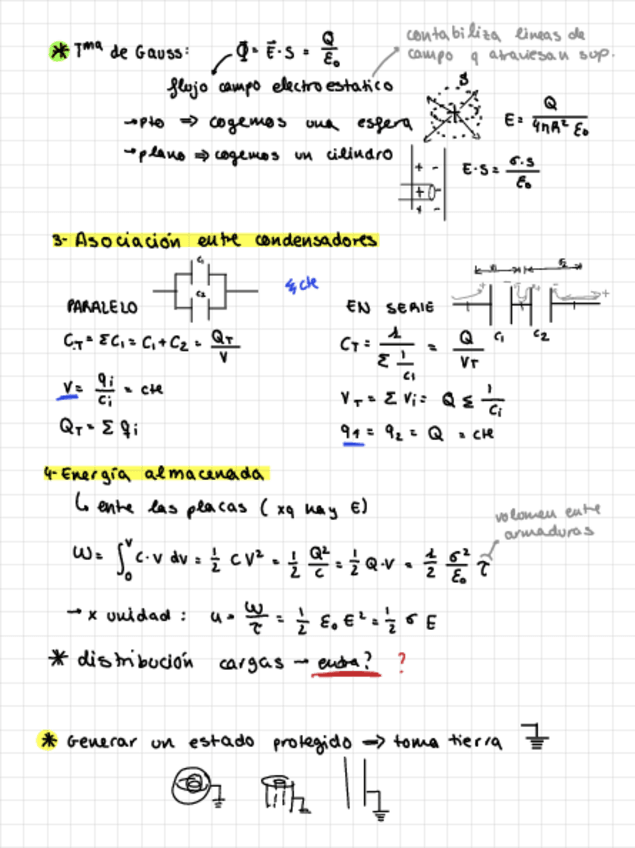 * Tma de Gauss: Φ = E⃗ · S = Q/ε₀
contabiliza lineas de
campo q atraviesan sup.
flujo campo electroestatico
→ pto ⇒ cogemos una esfera
S
E = Q/4πR² ε₀
→ plano ⇒ cogemos un cilindro
+ -
+ -
+ -
E·S = σ·S/ε₀
3- Asociación entre condensadores
C₁
C₂
PARALELO
EN SERIE
C₁ C₂
C_T = ΣC₁ = C₁ + C₂ = Q_T/V
C_T = 1/Σ 1/C₁ = Q/V_T
V = qi/Ci = cte
V_T = Σ Vi = Q Σ 1/Ci
Q_T = Σ qi
q1 = q₂ = Q = cte
4- Energía almacenada
↳ entre las placas (xq hay E)
volumen entre
armaduras
W = ∫₀ⱽ C·V dv = 1/2 CV² = 1/2 Q²/C = 1/2 Q·V = 1/2 σ²/ε₀ τ
→ x unidad: u = W/τ = 1/2 ε₀ E² = 1/2 σ E
* distribución cargas → entra? ?
* Generar un estado protegido ⇒ toma tierra